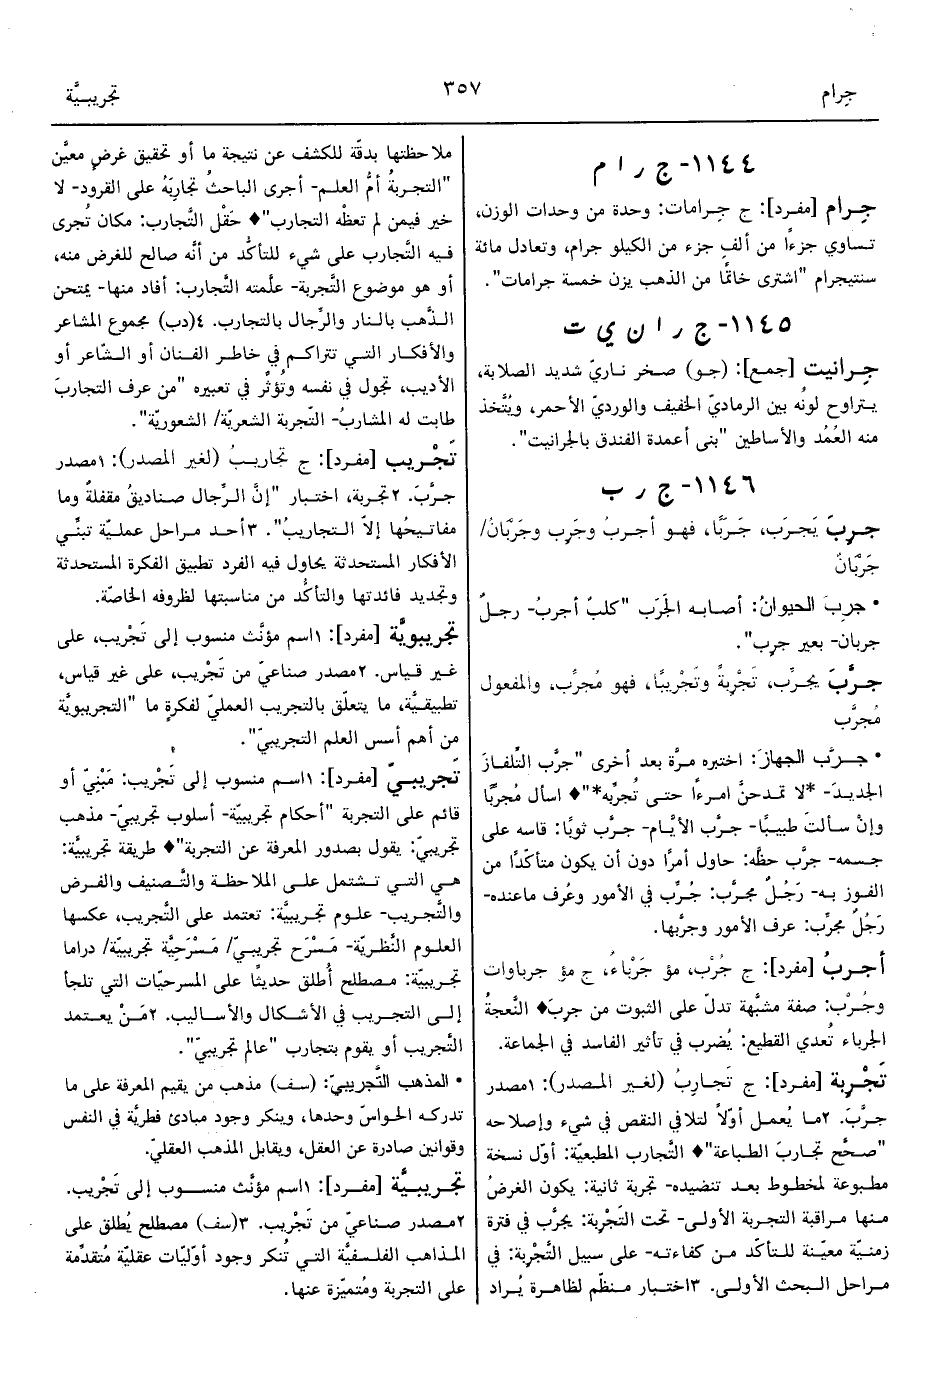 جِرام
٣٥٧
تجريبيَّة
١١٤٤- ج ر ا م
جِرام [مفرد]: ج جِرامات: وحدة من وحدات الوزن،
تساوي جزءًا من ألفِ جزء من الكيلو جرام، وتعادل مائة
سنتيجرام "اشترى خاتمًا من الذهب يزن خمسة جرامات".
١١٤٥- ج ر ا ن ي ت
جِرانيت [جمع]: (جو) صخر ناريّ شديد الصلابة،
يتراوح لونه بين الرماديّ الخفيف والورديّ الأحمر، ويُتَّخذ
منه العُمُد والأساطين "بنى أعمدة الفندق بالجرانيت".
١١٤٦- ج ر ب
جرِبَ يَجرَب، جَرَبًا، فهو أجربُ وجَرِب وجَرْبَانُ/
جَرْبَانٌ
• جرِبَ الحيوانُ: أصابه الجَرَب "كلبٌ أجربُ- رجلٌ
جربان- بعير جرِب".
جرَّبَ يجرِّب، تَجْرِبةً وتَجْريبًا، فهو مُجرِّب، والمفعول
مُجرَّب
• جرَّب الجهازَ: اختبره مرَّة بعد أخرى "جرَّب التِّلفازَ
الجديدَ- *لا تمدحنَّ امرءًا حتى تُجرِّبه*"♦ اسأل مُجرِّبًا
وإنْ سألتَ طبيبًا- جرَّب الأيَّام- جرَّب ثوبًا: قاسه على
جسمه- جرَّب حظَّه: حاول أمرًا دون أن يكون متأكدًا من
الفوز به- رَجُلٌ مجرَّب: جُرِّب في الأمور وعُرف ماعنده-
رَجُلٌ مجرِّب: عرف الأمور وجرَّبها.
أجربُ [مفرد]: ج جُرْب، مؤ جَرْباءُ، ج مؤ جرباوات
وجُرْب: صفة مشبَّهة تدلّ على الثبوت من جرِبَ♦ النَّعجةُ
الجرباء تُعدي القطيع: يُضرب في تأثير الفاسد في الجماعة.
تَجْرِبة [مفرد]: ج تَجاربُ (لغير المصدر): ١مصدر
جرَّبَ. ٢ما يُعمل أوّلاً لتلافي النقص في شيء وإصلاحه
"صحَّح تجاربَ الطباعة"♦ التَّجارب المطبعيّة: أوّل نسخة
مطبوعة لمخطوط بعد تنضيده- تجربة ثانية: يكون الغرضُ
منها مراقبة التجربة الأولى- تحت التَّجرِبة: يجرَّب في فترة
زمنيّة معيّنة للتأكد من كفاءته- على سبيل التَّجْرِبة: في
مراحل البحث الأولى. ٣اختبار منظّم لظاهرة يُراد
ملاحظتها بدقّة للكشف عن نتيجة ما أو تحقيق غرضٍ معيَّن
"التجربةُ أمُّ العلم- أجرى الباحثُ تجاربَهُ على القرود- لا
خير فيمن لم تعظْه التجارب"♦ حَقْل التَّجارب: مكان تُجرى
فيه التَّجارب على شيء للتأكد من أنَّه صالح للغرض منه،
أو هو موضوع التَّجربة- علَّمته التَّجارب: أفاد منها- يمتحن
الذَّهب بالنار والرِّجال بالتجارب. ٤(دب) مجموع المشاعر
والأفكار التي تتراكم في خاطر الفنان أو الشّاعر أو
الأديب، تجول في نفسه وتُؤثِّر في تعبيره "من عرف التجاربَ
طابت له المشاربُ- التّجربة الشعريّة/ الشعوريّة".
تَجْريب [مفرد]: ج تجاريبُ (لغير المصدر): ١مصدر
جرَّبَ. ٢تجربة، اختبار "إنَّ الرِّجال صناديقُ مقفلةٌ وما
مفاتيحُها إلاّ التجاريبُ". ٣أحد مراحل عمليّة تبنِّي
الأفكار المستحدثة يحاول فيه الفرد تطبيق الفكرة المستحدثة
وتجديد فائدتها والتأكُّد من مناسبتها لظروفه الخاصّة.
تجريبويَّة [مفرد]: ١اسم مؤنَّث منسوب إلى تَجْريب، على
غير قياس. ٢مصدر صناعيّ من تَجْريب، على غير قياس،
تطبيقيَّة، ما يتعلّق بالتجريب العمليّ لفكرةٍ ما "التجريبويَّة
من أهم أسس العلم التجريبيّ".
تَجْريبيّ [مفرد]: ١اسم منسوب إلى تَجْريب: مَبْنِيّ أو
قائم على التجربة "أحكام تجريبيّة- أسلوب تجريبيّ- مذهب
تجريبيّ: يقول بصدور المعرفة عن التجربة"♦ طريقة تجريبيَّة:
هي التي تشتمل على الملاحظة والتَّصنيف والفرض
والتَّجريب- علوم تجريبيَّة: تعتمد على التَّجريب، عكسها
العلوم النَّظريّة- مَسْرَح تجريبيّ/ مَسْرَحيَّة تجريبيّة/ دراما
تجريبيّة: مصطلح أُطلق حديثًا على المسرحيّات التي تلجأ
إلى التجريب في الأشكال والأساليب. ٢مَنْ يعتمد
التَّجريب أو يقوم بتجارب "عالم تجريبيّ".
• المذهب التَّجريبيّ: (سف) مذهب من يقيم المعرفة على ما
تدركه الحواسّ وحدها، وينكر وجود مبادئ فطريَّة في النفس
وقوانين صادرة عن العقل، ويقابل المذهب العقليّ.
تَجريبيَّة [مفرد]: ١اسم مؤنَّث منسوب إلى تَجْريب.
٢مصدر صناعيّ من تَجْريب. ٣(سف) مصطلح يُطلق على
المذاهب الفلسفيَّة التي تُنكر وجود أوّليّات عقليّة مُتقدِّمة
على التجربة ومُتميّزة عنها.